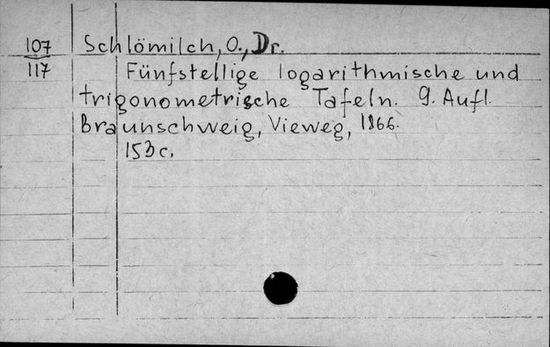 107 Schlömilch, O., Dr.
117 Fünfstellige logarithmische und
trigonometrische Tafeln. 9. Aufl.
Braunschweig, Vieweg, 1866.
153 c.